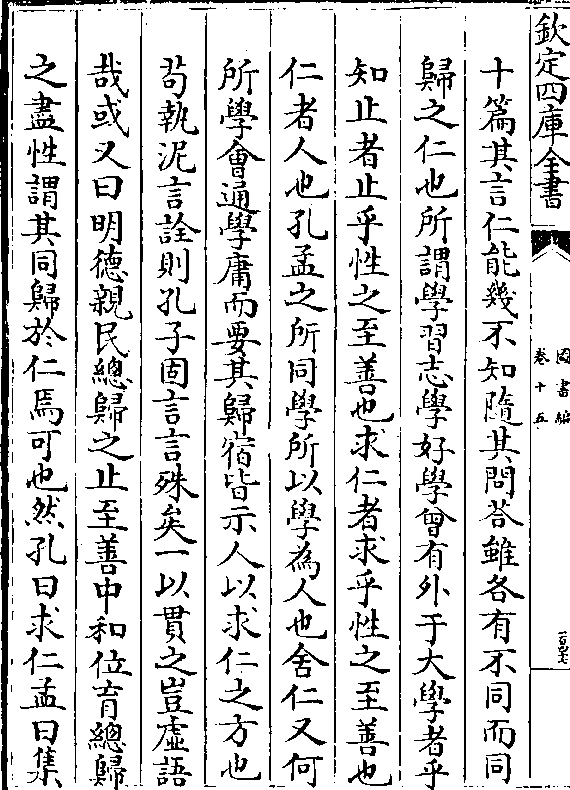 欽定四庫全書
圖書編
卷十五
十篇其言仁能幾不知隨其問荅雖各有不同而同
歸之仁也所謂學習志學好學曾有外于大學者乎
知止者止乎性之至善也求仁者求乎性之至善也
仁者人也孔孟之所同學所以學為人也舍仁又何
所學會通學庸而要其歸宿皆示人以求仁之方也
苟執泥言詮則孔子固言言殊矣一以貫之豈虛語
哉或又曰明德親民總歸之止至善中和位育總歸
之盡性謂其同歸於仁焉可也然孔曰求仁孟曰集